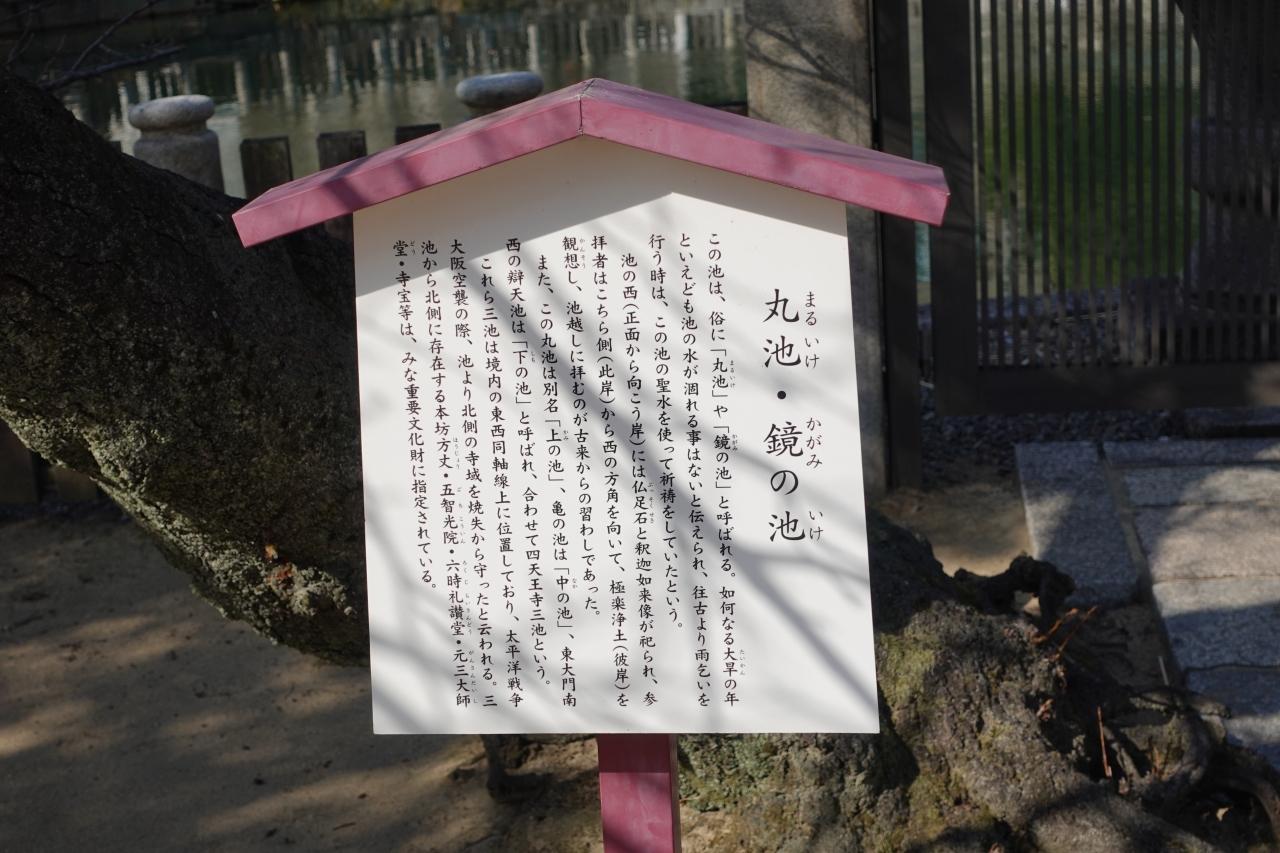 丸池・鏡の池
まるいけ かがみ いけ
この池は、俗に「丸池」や「鏡の池」と呼ばれる。如何なる大旱の年
まるいけ かがみ たいかん
といえども池の水が涸れる事はないと伝えられ、往古より雨乞いを
行う時は、この池の聖水を使って祈祷をしていたという。
池の西(正面から向こう岸)には仏足石と釈迦如来像が祀られ、参
ぶっそくせき
拝者はこちら側(此岸)から西の方角を向いて、極楽浄土(彼岸)を
観想し、池越しに拝むのが古来からの習わしであった。
かんそう
また、この丸池は別名「上の池」、亀の池は「中の池」、東大門南
かみ なか
西の辯天池は「下の池」と呼ばれ、合わせて四天王寺三池という。
しも
これら三池は境内の東西同軸線上に位置しており、太平洋戦争
大阪空襲の際、池より北側の寺域を焼失から守ったと云われる。三
池から北側に存在する本坊方丈・五智光院・六時礼讃堂・元三大師
ほうじょう ごちこういん ろくじらいさんどう がんさんだいし
堂・寺宝等は、みな重要文化財に指定されている。
どう